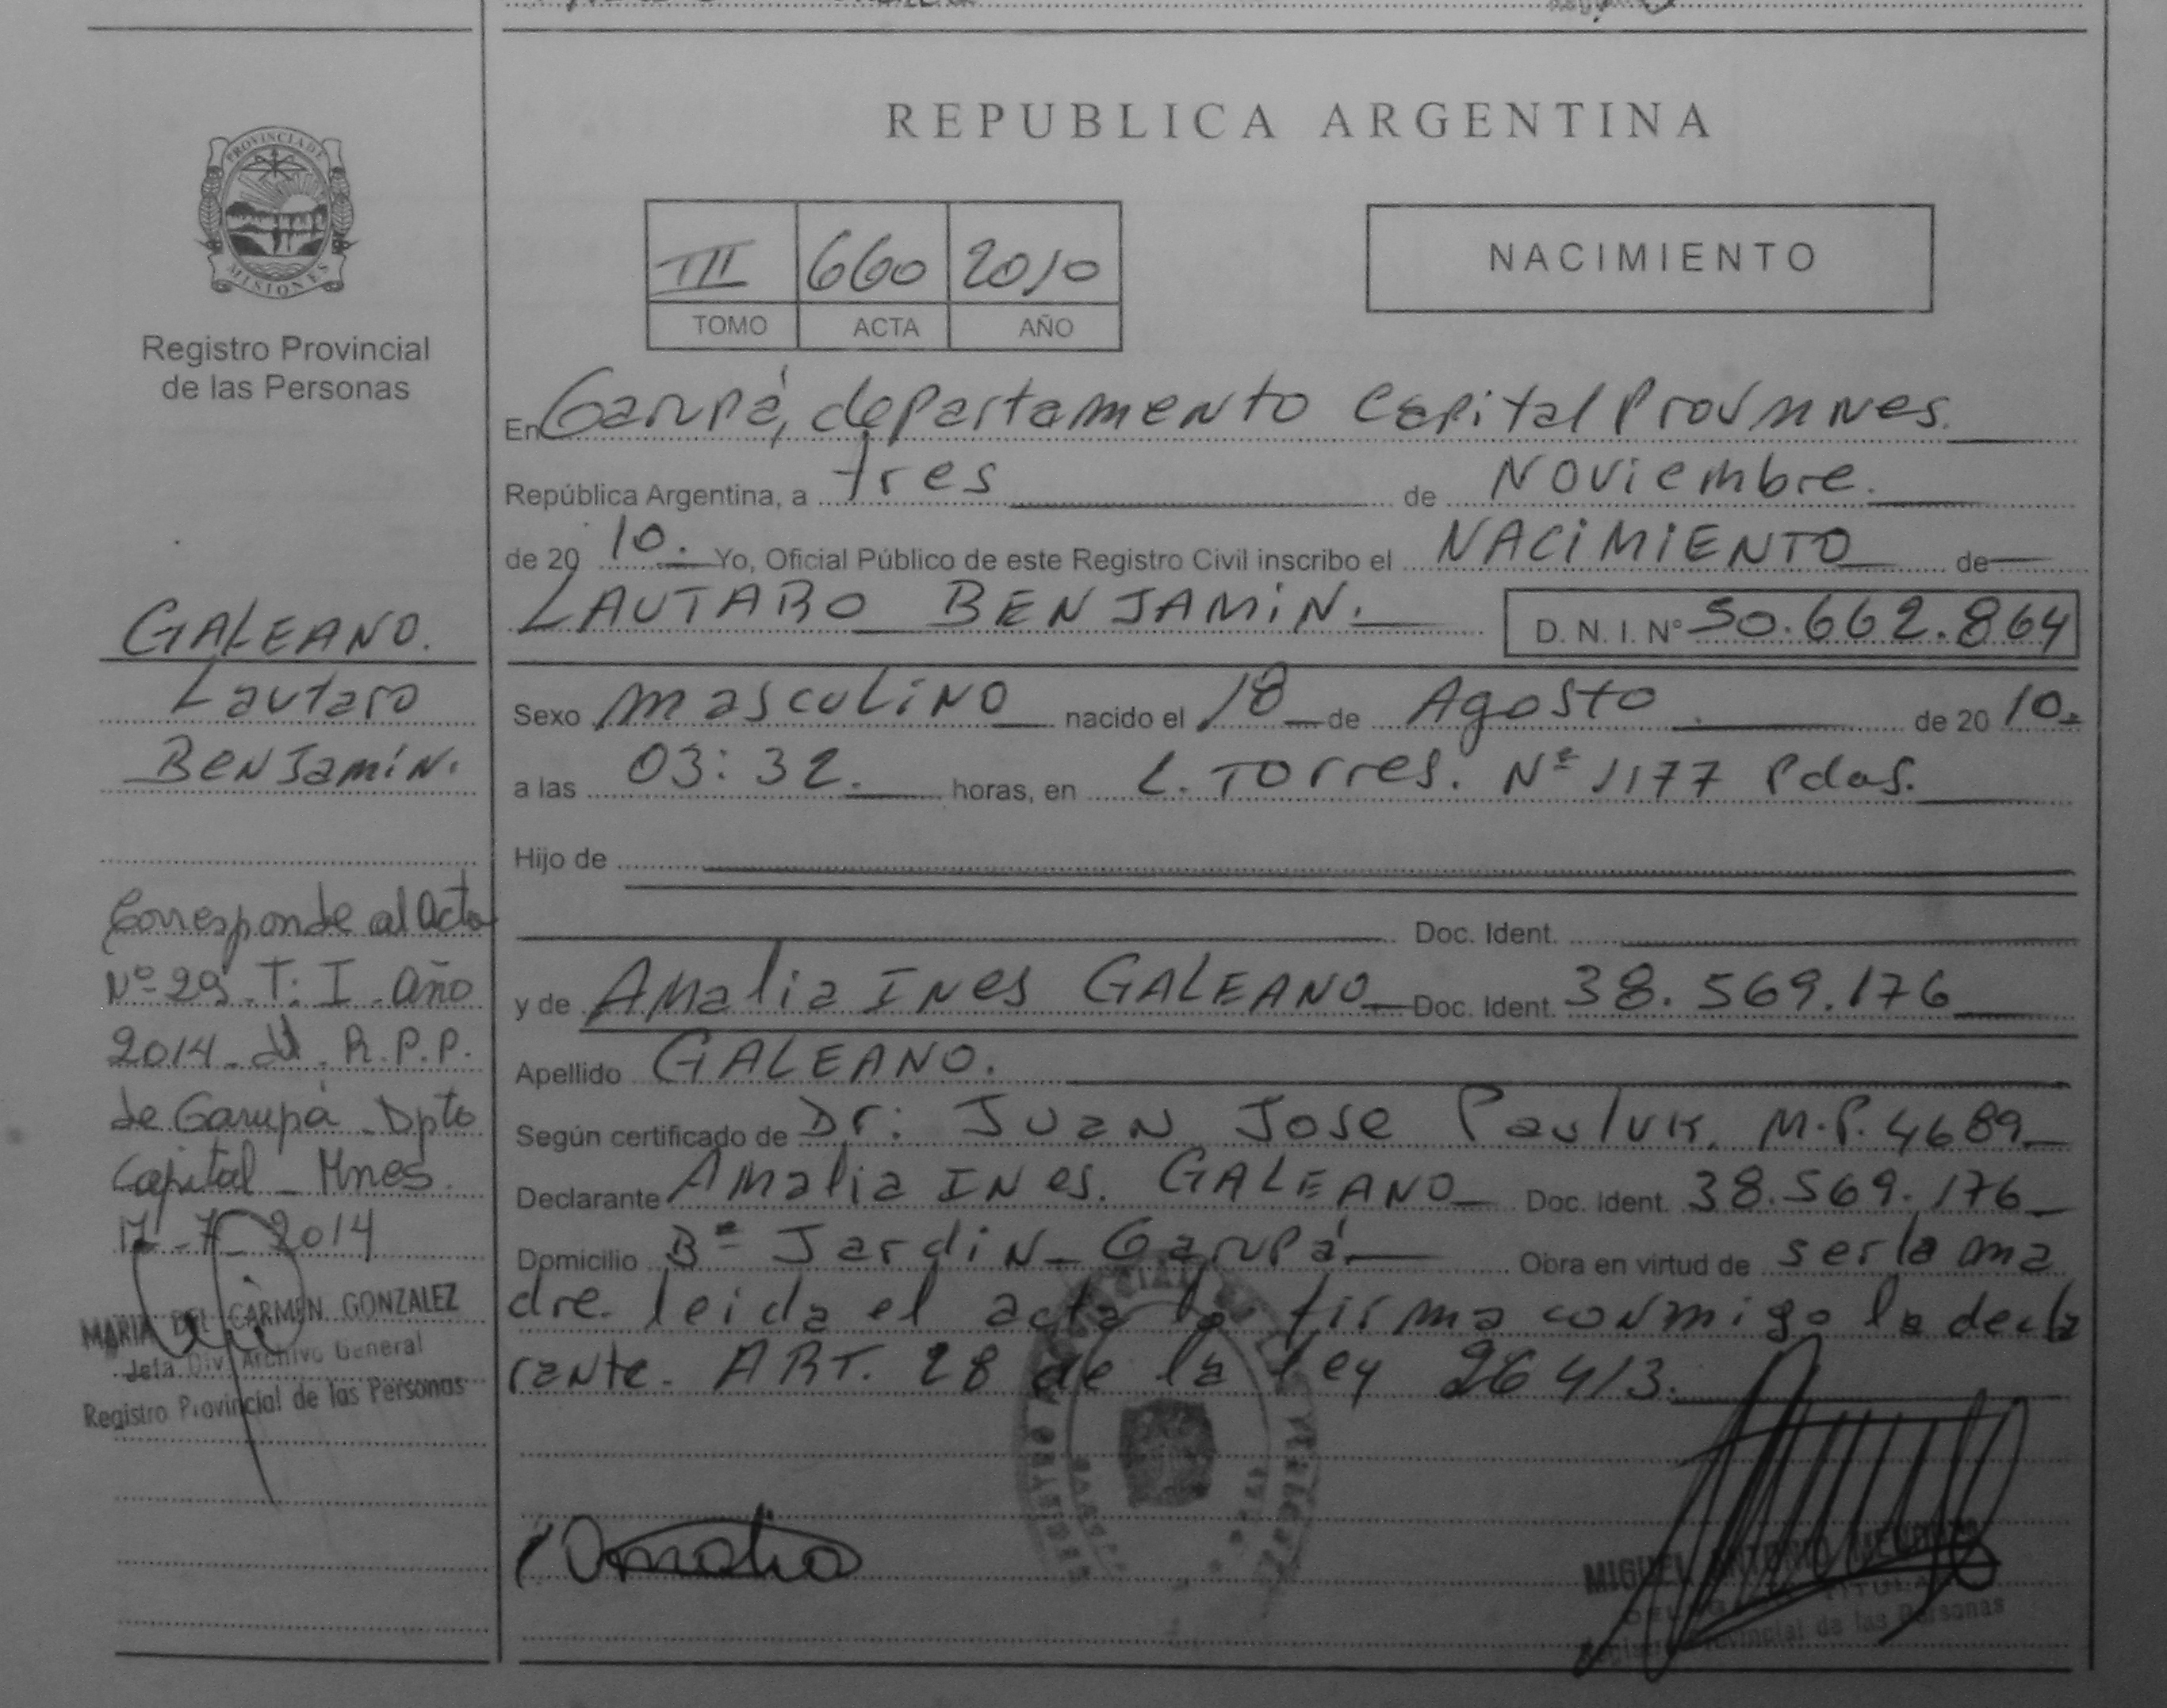 PROVINCIA DE
MISIONES
Registro Provincial
de las Personas
GALEANO.
Lautaro
Benjamín.
Corresponde al Acta
Nº 29 - T. I - Año
2014 - R.P.P.
de Garupá - Dpto
Capital - Mnes.
17-7-2014
MARIA DEL CARMEN GONZALEZ
Jefa Div. Archivo General
Registro Provincial de las Personas
REPUBLICA ARGENTINA
III 660 2010
TOMO ACTA AÑO
NACIMIENTO
En Garupá, departamento Capital Prov mnes.
República Argentina, a tres de Noviembre.
de 20 10. Yo, Oficial Público de este Registro Civil inscribo el NACIMIENTO de
LAUTARO BENJAMIN. D. N. I. Nº 50.662.864
Sexo masculino nacido el 18 de Agosto de 20 10.
a las 03:32. horas, en L. Torres. Nº 1177 Pdas.
Hijo de
Doc. Ident.
y de Amalia Ines GALEANO Doc. Ident. 38.569.176
Apellido GALEANO.
Según certificado de Dr: Juan Jose Pauluk. M.P. 4689
Declarante Amalia Ines. GALEANO Doc. Ident. 38.569.176
Domicilio Bº Jardin - Garupá Obra en virtud de ser la ma
dre. leida el acta la firma conmigo la decla
rante. ART. 28 de la ley 26413.
Amalia
MIGUEL ANTONIO
TITULAR
Registro Provincial de las Personas